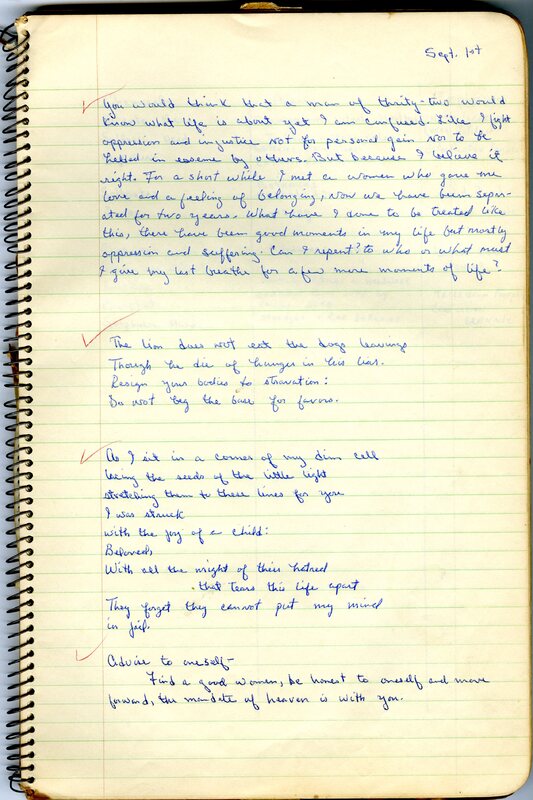 Sept. 1st
You would think that a man of thrity-two would
know what life is about yet I am confused. Like I fight
oppression and injustice not for personal gain nor to be
helded in esseme by others. But because I believe it
right. For a short while I met a women who gave me
love and a feeling of belonging, now we have been separ-
ated for two years. What have I done to be treated like
this, there have been good moments in my life but mostly
oppression and suffering. Can I repent? to who or what must
I give my last breathe for a few more moments of life?
The lion does not eat the dogs leavings
Though he die of hunger in his liar.
Resign your bodies to stravation:
Do not beg the base for favors.
As I sit in a corner of my dim cell
the seeds of the little light
stretching them to these lines for you
I was struck
with the joy of a child:
Beloved,
With all the might of their hatred
that tears this life apart
They forget they cannot put my mind
in jail.
Advise to oneself-
Find a good women, be honest to oneself and move
forward, the mandate of heaven is with you.